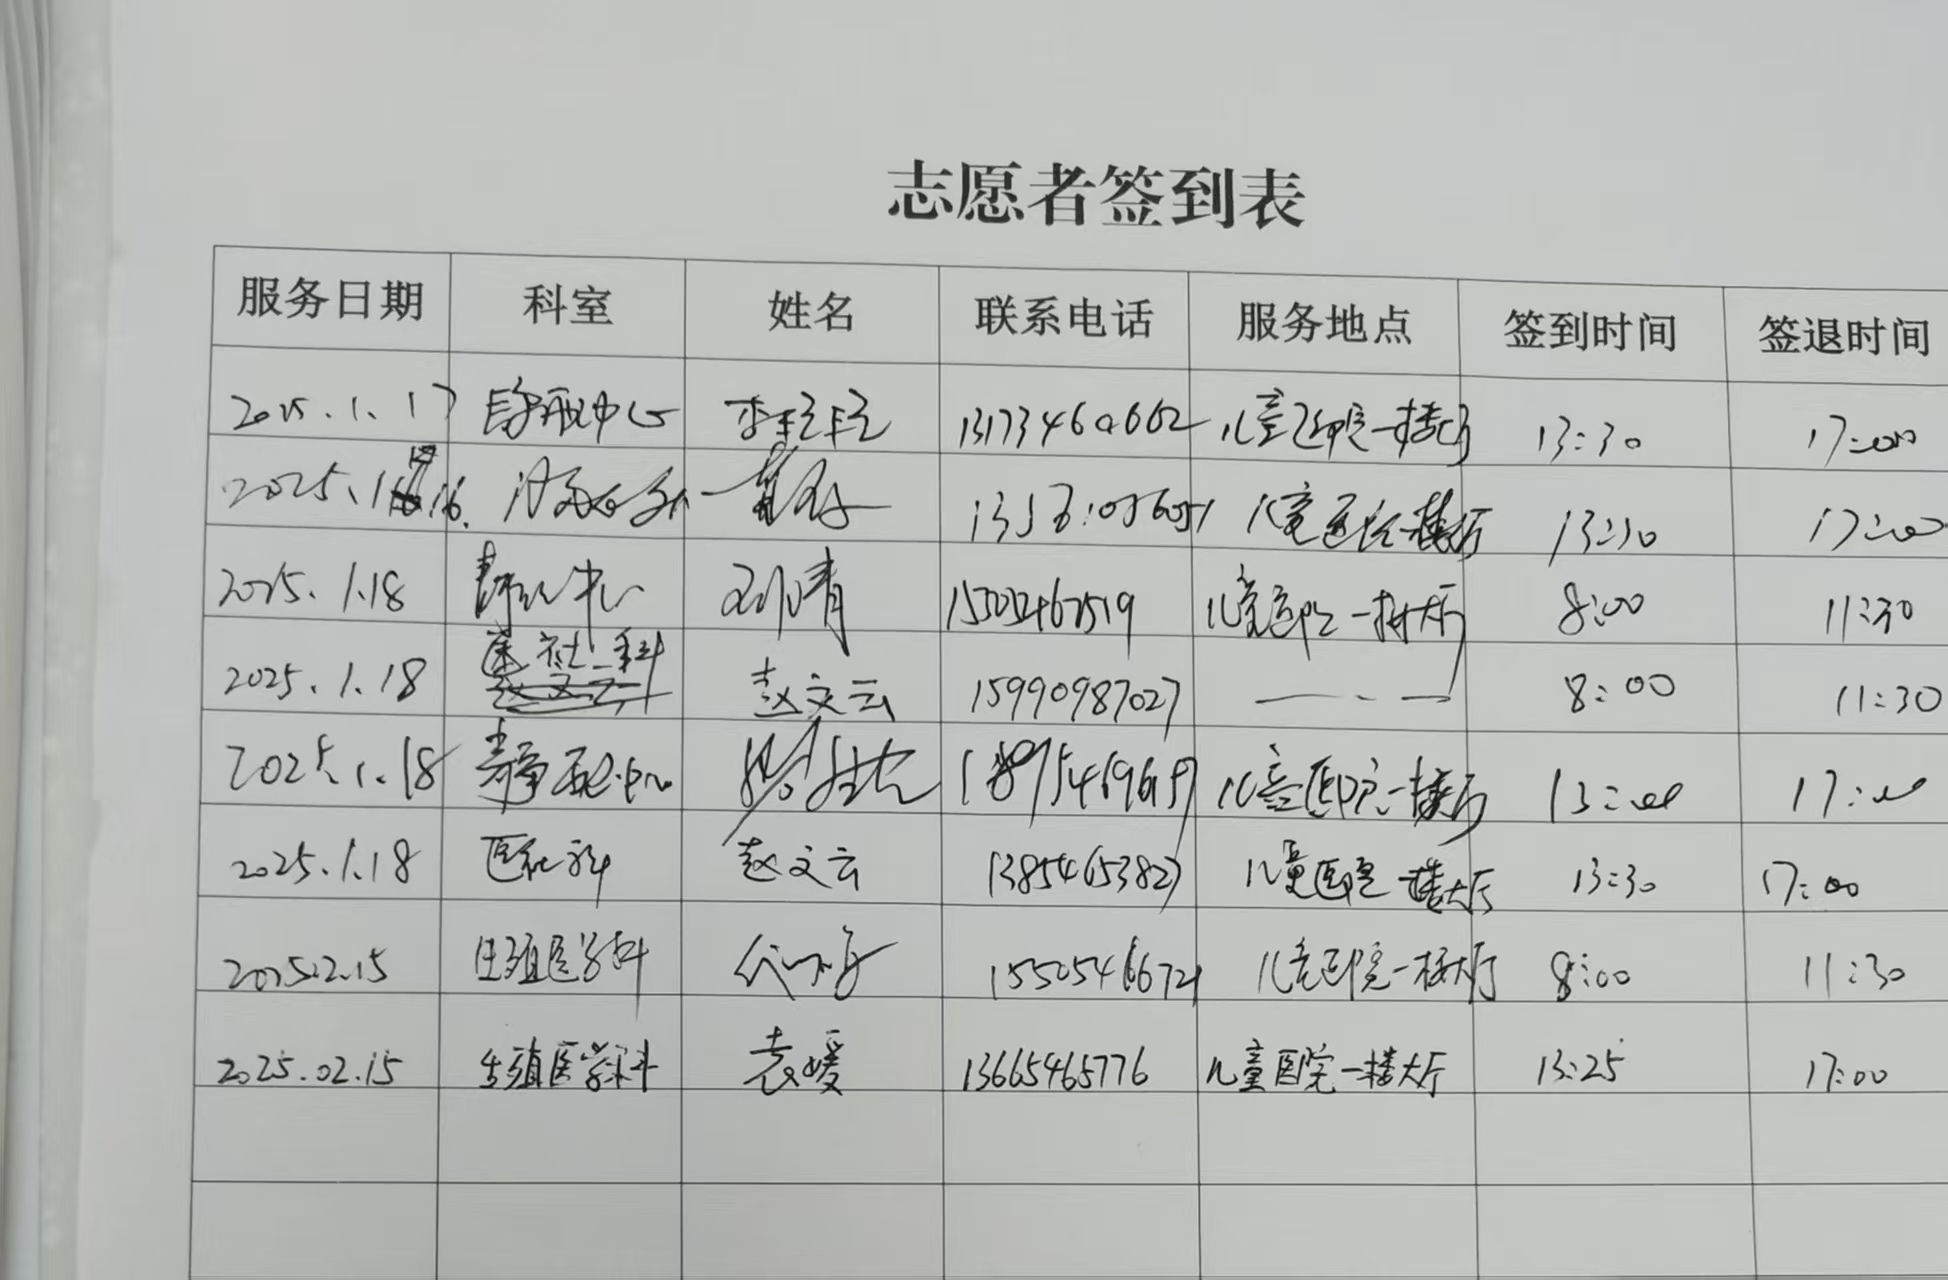 志愿者签到表
服务日期 科室 姓名 联系电话 服务地点 签到时间 签退时间
2025.1.17 静配中心 13173460662 儿童医院一楼大厅 13:30 17:00
2025.1.16. 儿童医院一楼大厅 13:30 17:00
2025.1.18 静配中心 刘倩 儿童医院一楼大厅 8:00 11:30
2025.1.18 医社科 赵文云 15990987027 8:00 11:30
2025.1.18 静配中心 儿童医院一楼大厅 13:00 17:00
2025.1.18 医社科 赵文云 13854653827 儿童医院一楼大厅 13:30 17:00
2025.2.15 生殖医学科 15505466721 儿童医院一楼大厅 8:00 11:30
2025.02.15 生殖医学科 袁媛 13665465776 儿童医院一楼大厅 13:25 17:00